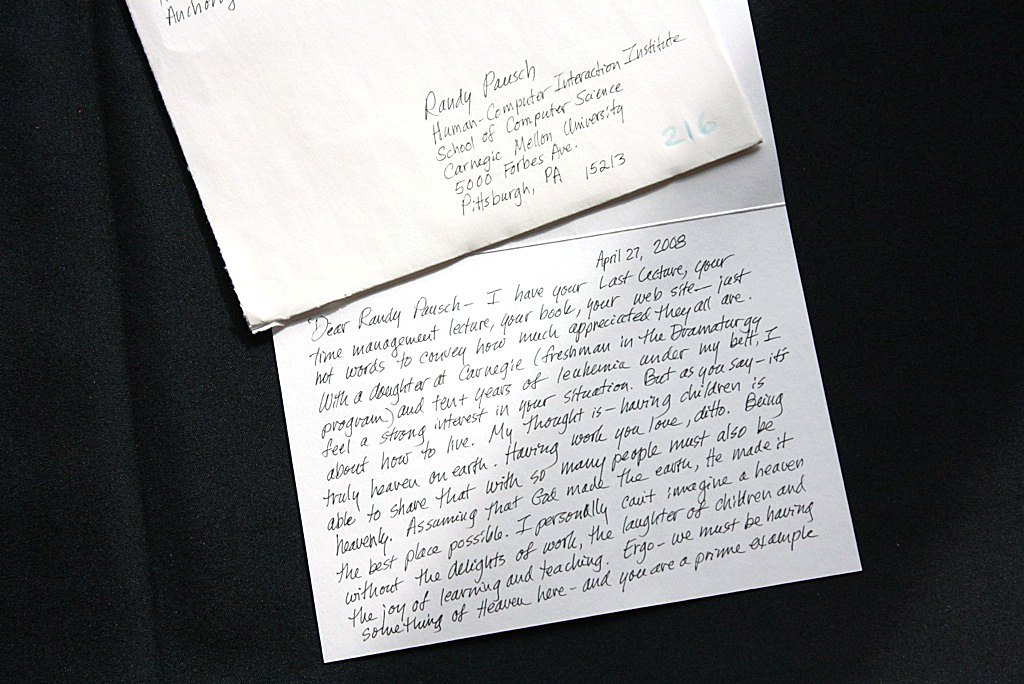 Anchor
Randy Pausch
Human-Computer Interaction Institute
School of Computer Science
Carnegie Mellon University
5000 Forbes Ave.
Pittsburgh, PA 15213
216
April 27, 2008
Dear Randy Pausch- I have your Last Lecture, your
time management lecture, your book, your web site- just
not words to convey how much appreciated they all are.
With a daughter at Carnegie (freshman in the Dramaturgy
program) and ten+ years of leukemia under my belt, I
feel a strong interest in your situation. But as you say-it's
about how to live. My thought is-having children is
truly heaven on earth. Having work you love, ditto. Being
able to share that with so many people must also be
heavenly. Assuming that God made the earth, He made it
the best place possible. I personally can't imagine a heaven
without the delights of work, the laughter of children and
the joy of learning and teaching. Ergo- we must be having
something of Heaven here-and you are a prime example